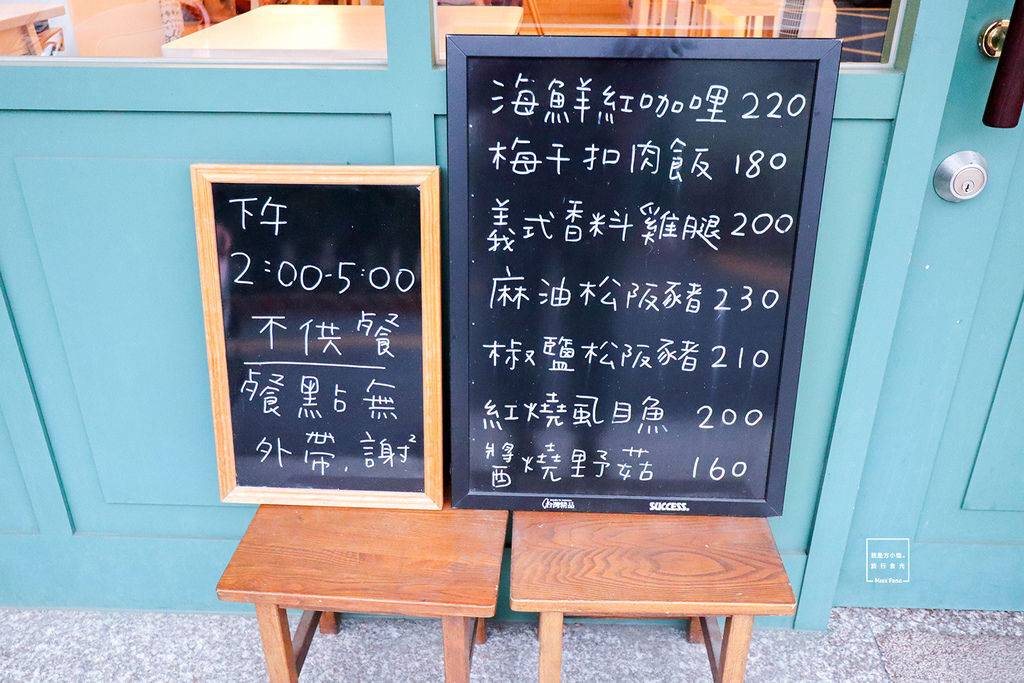 下午
2:00-5:00
不供餐
餐點無
外帶,謝²
海鮮紅咖哩 220
梅干扣肉飯 180
義式香料雞腿 200
麻油松阪豬 230
椒鹽松阪豬 210
紅燒虱目魚 200
醬燒野菇 160
台灣精品
SUCCESS
我是方小姐。
旅行食光
Miss Fang